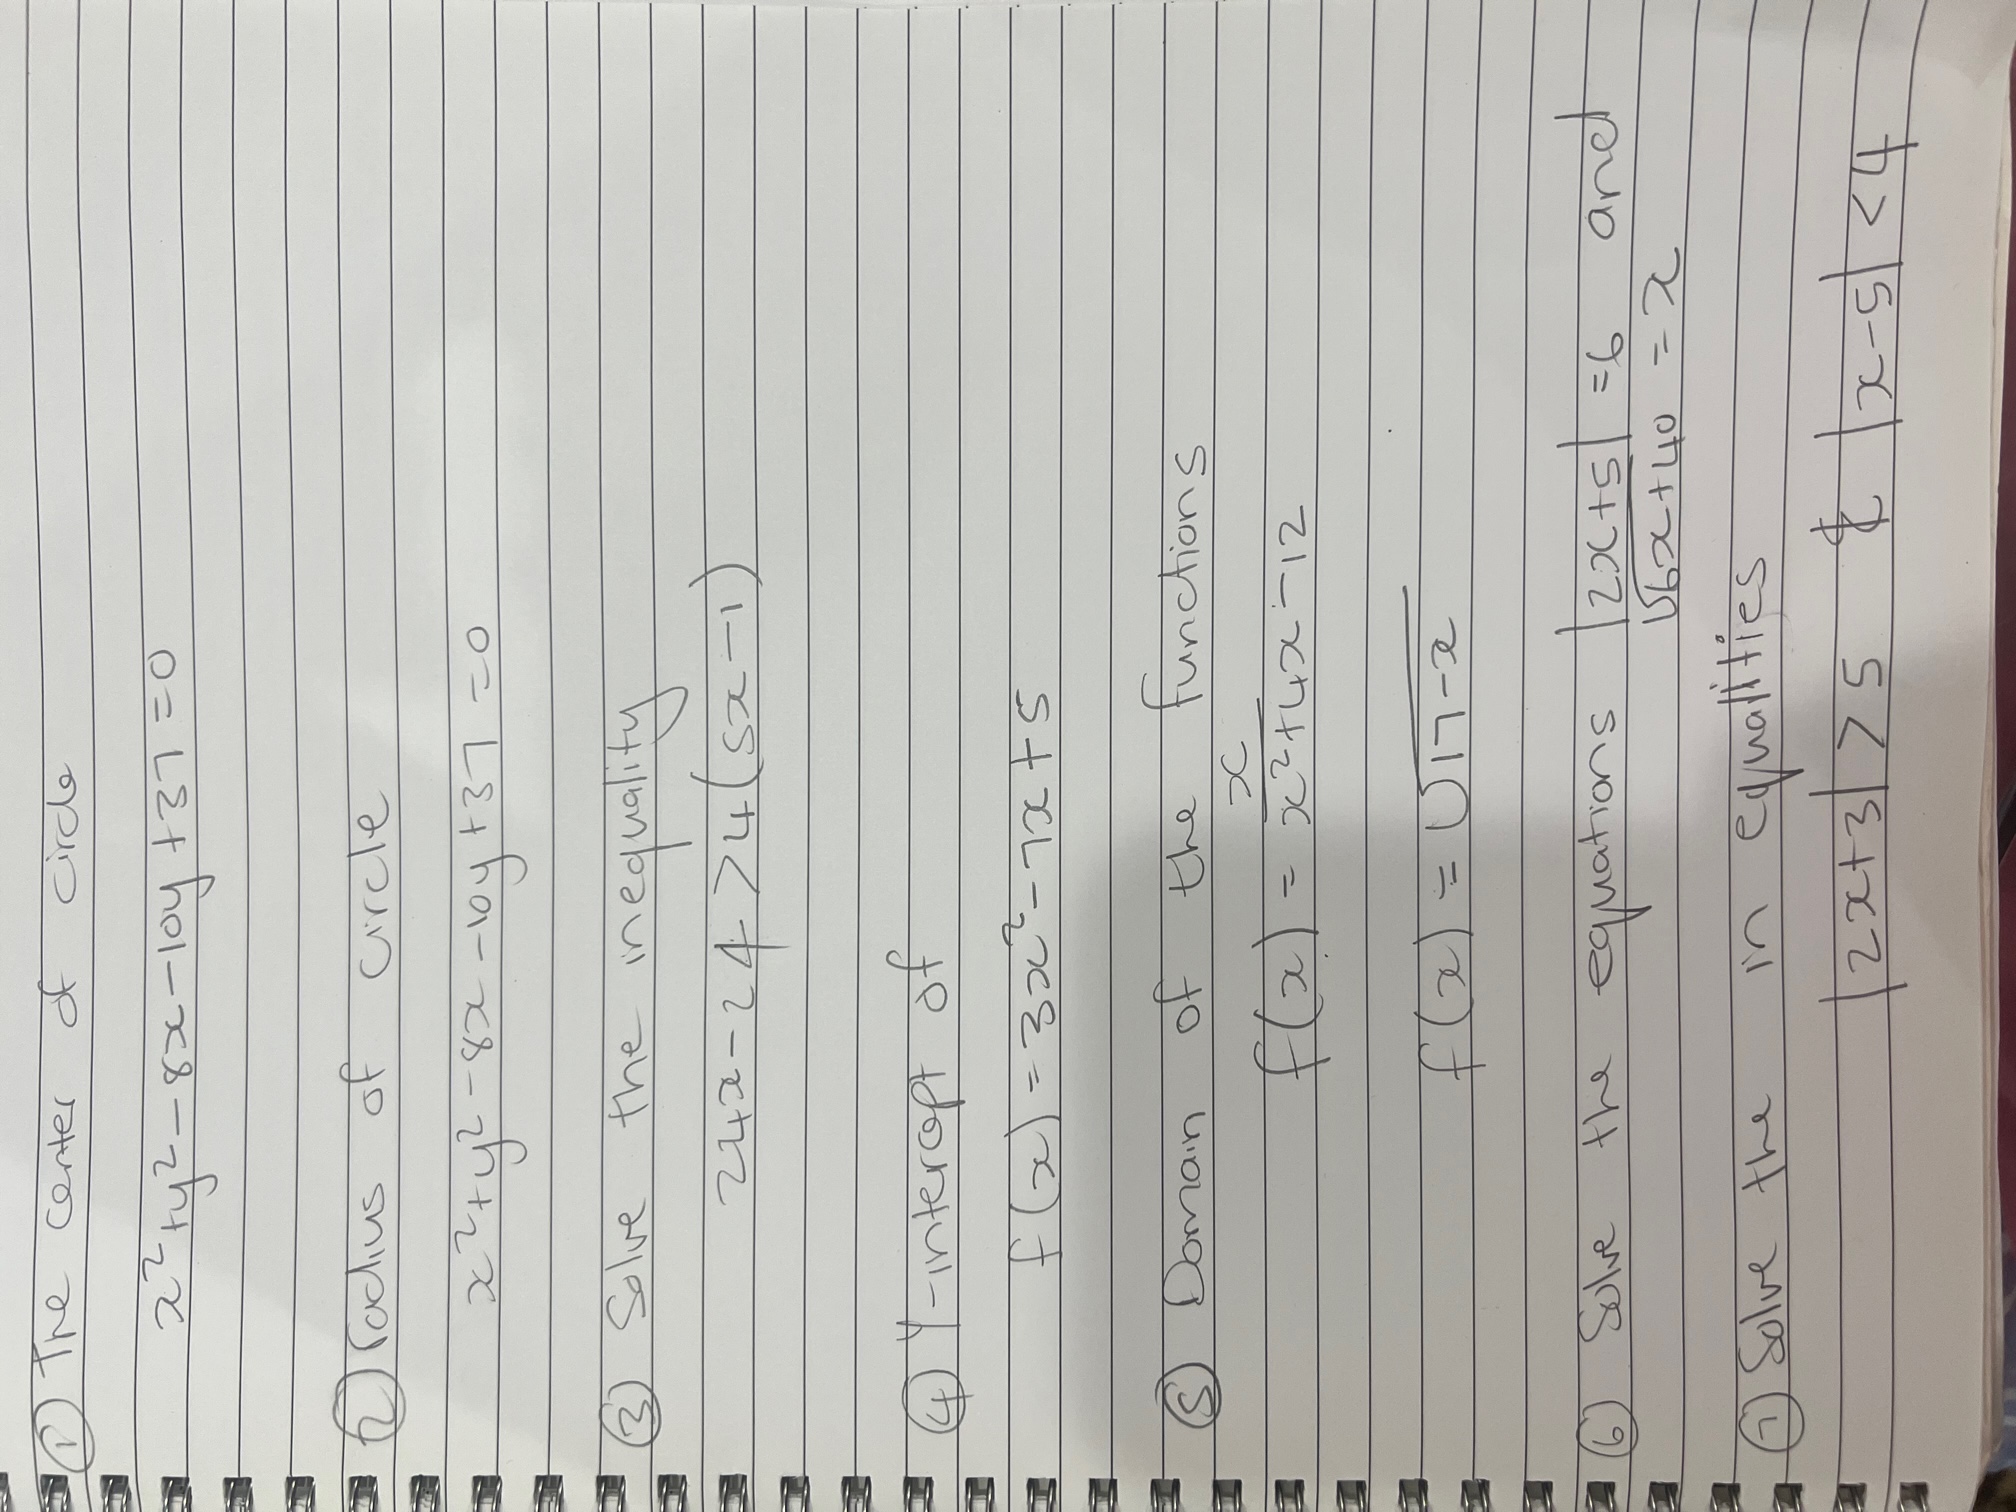 ① The center of circle
x²+y²-8x-10y+37=0
② radius of circle
x²+y²-8x-10y+37=0
③ Solve the inequality
24x-24>4(5x-1)
④ Y-intercept of
f(x)=3x²-7x+5
⑤ Domain of the functions
x
f(x) = x²+4x-12
f(x) = √17-x
⑥ Solve the equations |2x+5|=6 and
√6x+40 = x
⑦ Solve the in equallities
|2x+3|>5 & |x-5|<4